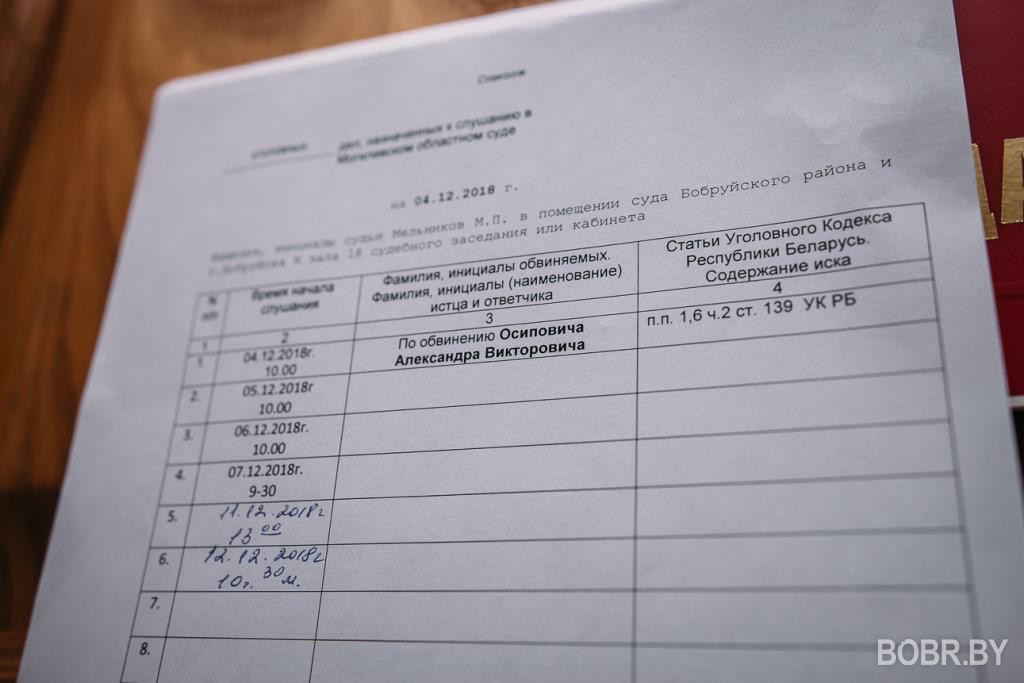 Список
уголовных дел, назначенных к слушанию в
Могилевском областном суде
на 04.12.2018 г.
Фамилия, инициалы судьи Мельников М.П. в помещении суда Бобруйского района и
г.Бобруйска N зала 18 судебного заседания или кабинета
№
п/п
Время начала
слушания
Фамилия, инициалы обвиняемых.
Фамилия, инициалы (наименование)
истца и ответчика
Статьи Уголовного Кодекса
Республики Беларусь.
Содержание иска
1 2 3 4
1. 04.12.2018г.
10.00
По обвинению Осиповича
Александра Викторовича
п.п. 1,6 ч.2 ст. 139 УК РБ
2. 05.12.2018г
10.00
3. 06.12.2018г.
10.00
4. 07.12.2018г.
9-30
5. 11.12.2018г
13 00
6. 12.12.2018г
10г. 30 м.
7.
8.
BOBR.BY